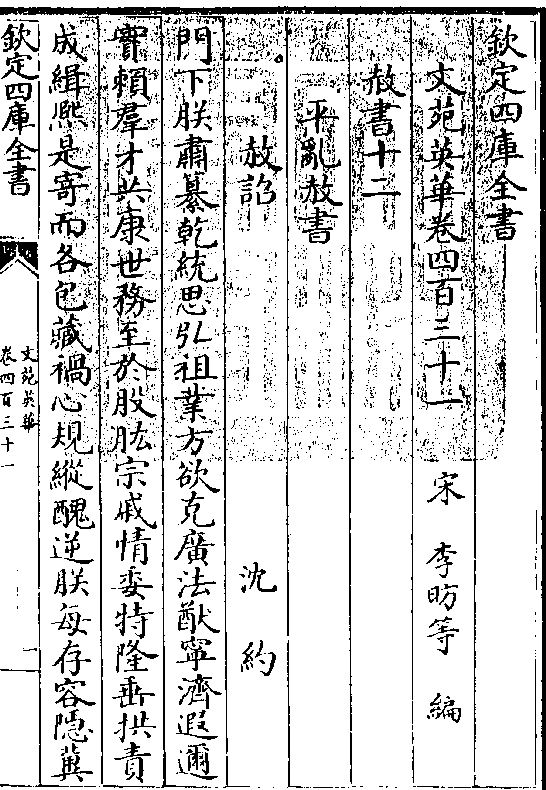 欽定四庫全書
文苑英華卷四百三十一
宋 李昉等 編
赦書十二
平亂赦書
赦詔 沈約
門下朕肅纂乾統思弘祖業方欲克廣法猷寧濟遐邇
實賴羣才共康世務至於股肱宗戚情委特隆垂拱責
成緝熙是寄而各包藏禍心規縱醜逆朕每存容隱冀
欽定四庫全書
文苑英華
卷四百三十一
一